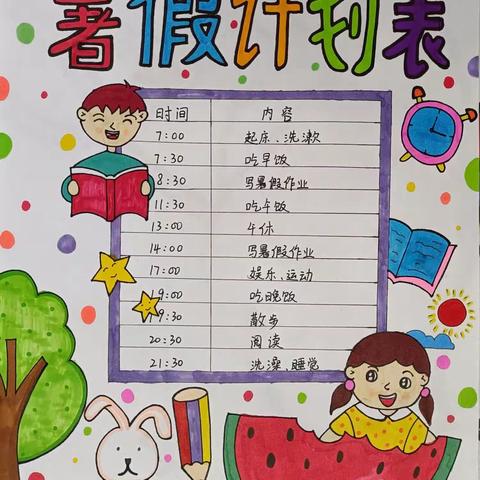 暑假计划表
时间 内容
7:00 起床、洗漱
7:30 吃早饭
8:30 写暑假作业
11:30 吃午饭
13:00 午休
14:00 写暑假作业
17:00 娱乐、运动
19:00 吃晚饭
19:30 散步
20:30 阅读
21:30 洗澡、睡觉